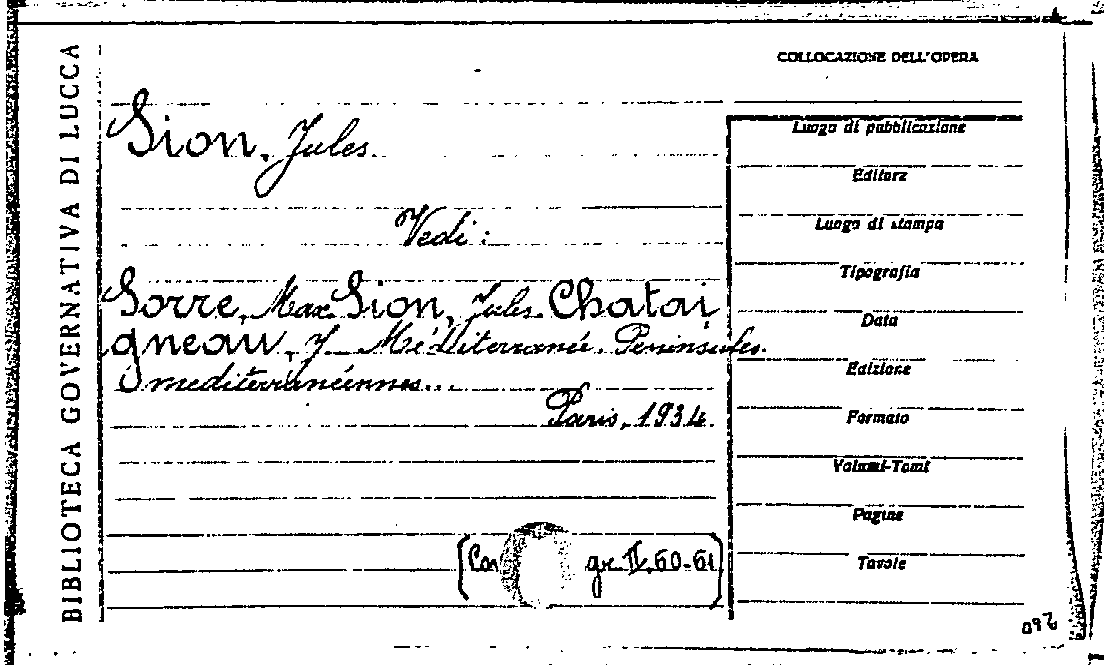 BIBLIOTECA GOVERNATIVA DI LUCCA
COLLOCAZIONE DELL'OPERA
Sion, Jules.
Vedi:
Sorre, Max. Sion, Jules. Chatai
gneau, J. Méditerranée. Peninsules
mediterranéennes...
Paris, 1934.
gr. II. 60-61]
Luogo di pubblicazione
Editore
Luogo di stampa
Tipografia
Data
Edizione
Formato
Volumi-Tomi
Pagine
Tavole